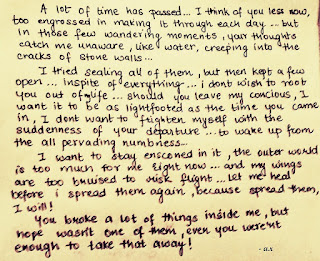 A lot of time has passed... I think of you less now,
too engrossed in making it through each day... but
in those few wandering moments, your thoughts
catch me unaware, like water, creeping into the
cracks of stone walls...
I tried sealing all of them, but then kept a few
open... inspite of everything... i dont wish to root
you out of life... should you leave my concious, I
want it to be as lightfooted as the time you came
in, I dont want to frighten myself with the
suddenness of your departure... to wake up from
the all pervading numbness...
I want to stay ensconed in it, the outer world
is too much for me right now... and my wings
are too bruised to risk flight... let me heal
before i spread them again, because spread them,
I will!
You broke a lot of things inside me, but
hope wasn't one of them, even you weren't
enough to take that away!